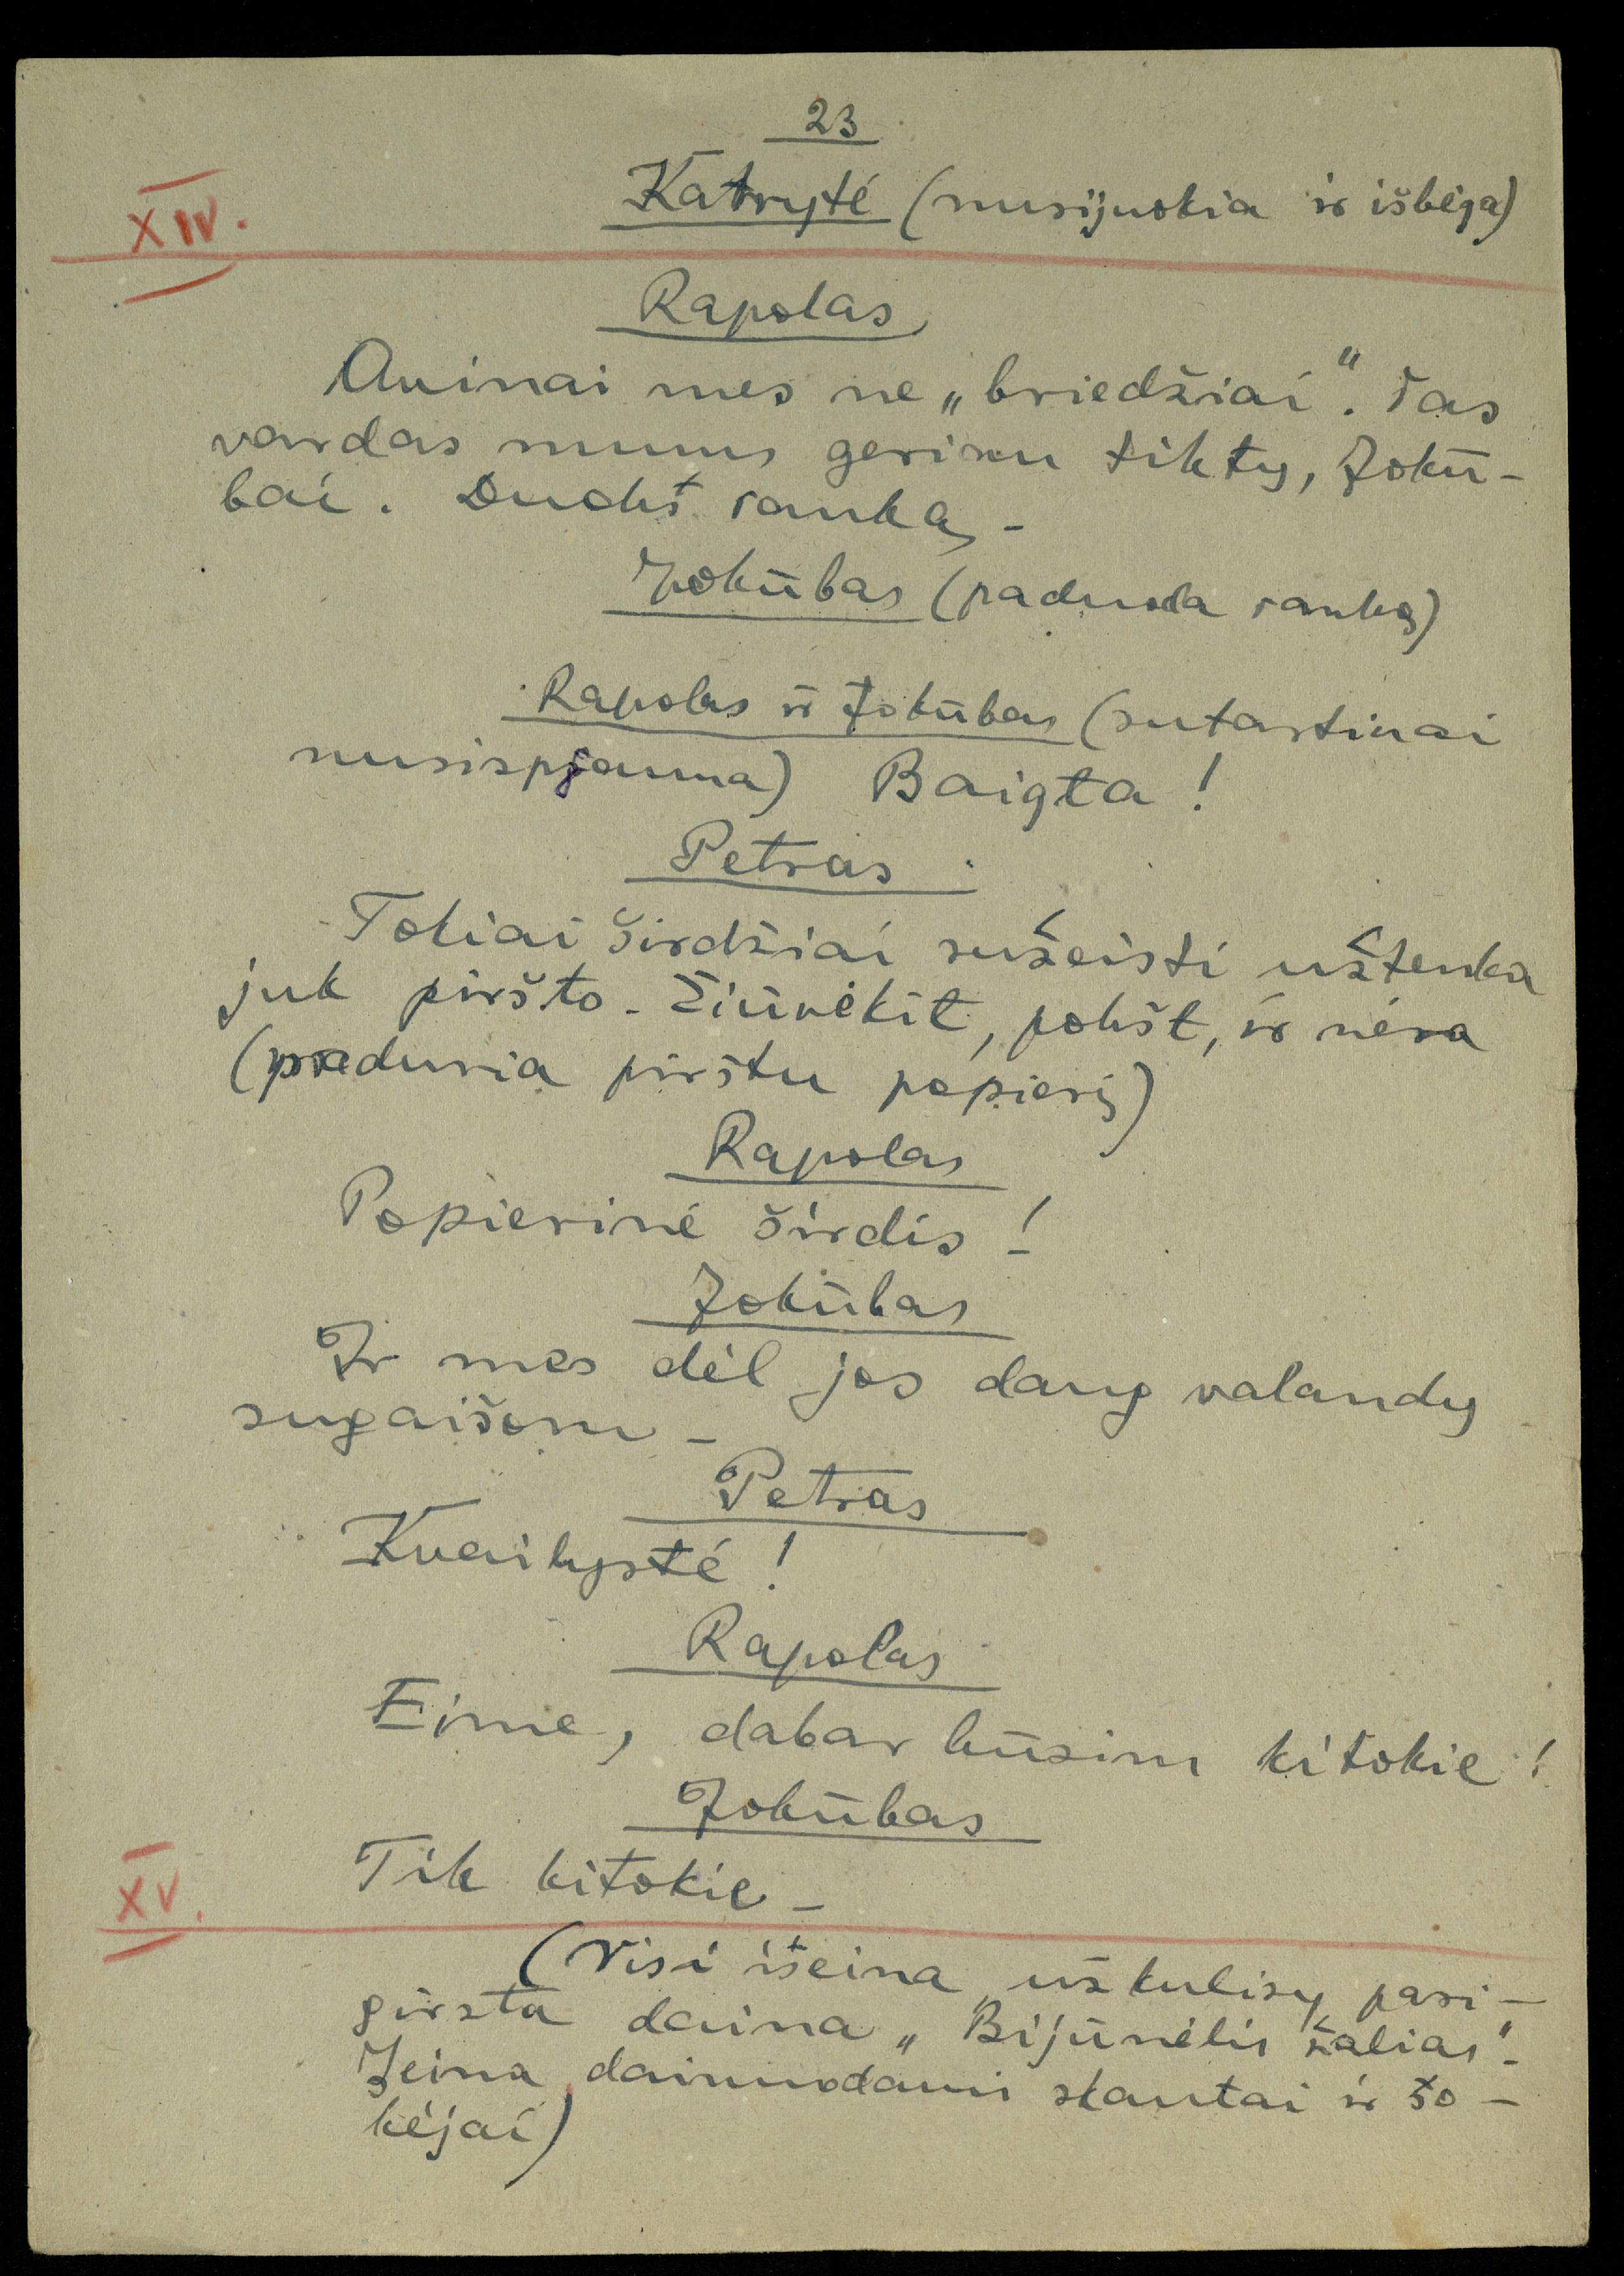 23
XIV.
Katrytė (nusijuokia ir išbėga)
Rapolas
Avinai mes ne „briedžiai“. Tas
vardas mums geriau tiktų, Jokū-
bai. Duokš ranką -
Jokūbas (paduoda ranką)
Rapolas ir Jokūbas (sutartinai
nusispjauna) Baigta!
Petras
Tokiai širdžiai sužeisti užtenka
juk piršto - Žiūrėkit, pokšt, ir nėra
(praduria pirštu popierių)
Rapolas
Popierinė širdis!
Jokūbas
Ir mes dėl jos daug valandų
sugaišom -
Petras
Kvailystė!
Rapolas
Eime, dabar būsim kitokie!
Jokūbas
Tik kitokie -
XV.
(Visi išeina, užkulisy pasi-
girsta daina „Bijūnėlis žalias“.
Įeina dainuodami skautai ir šo-
kėjai)